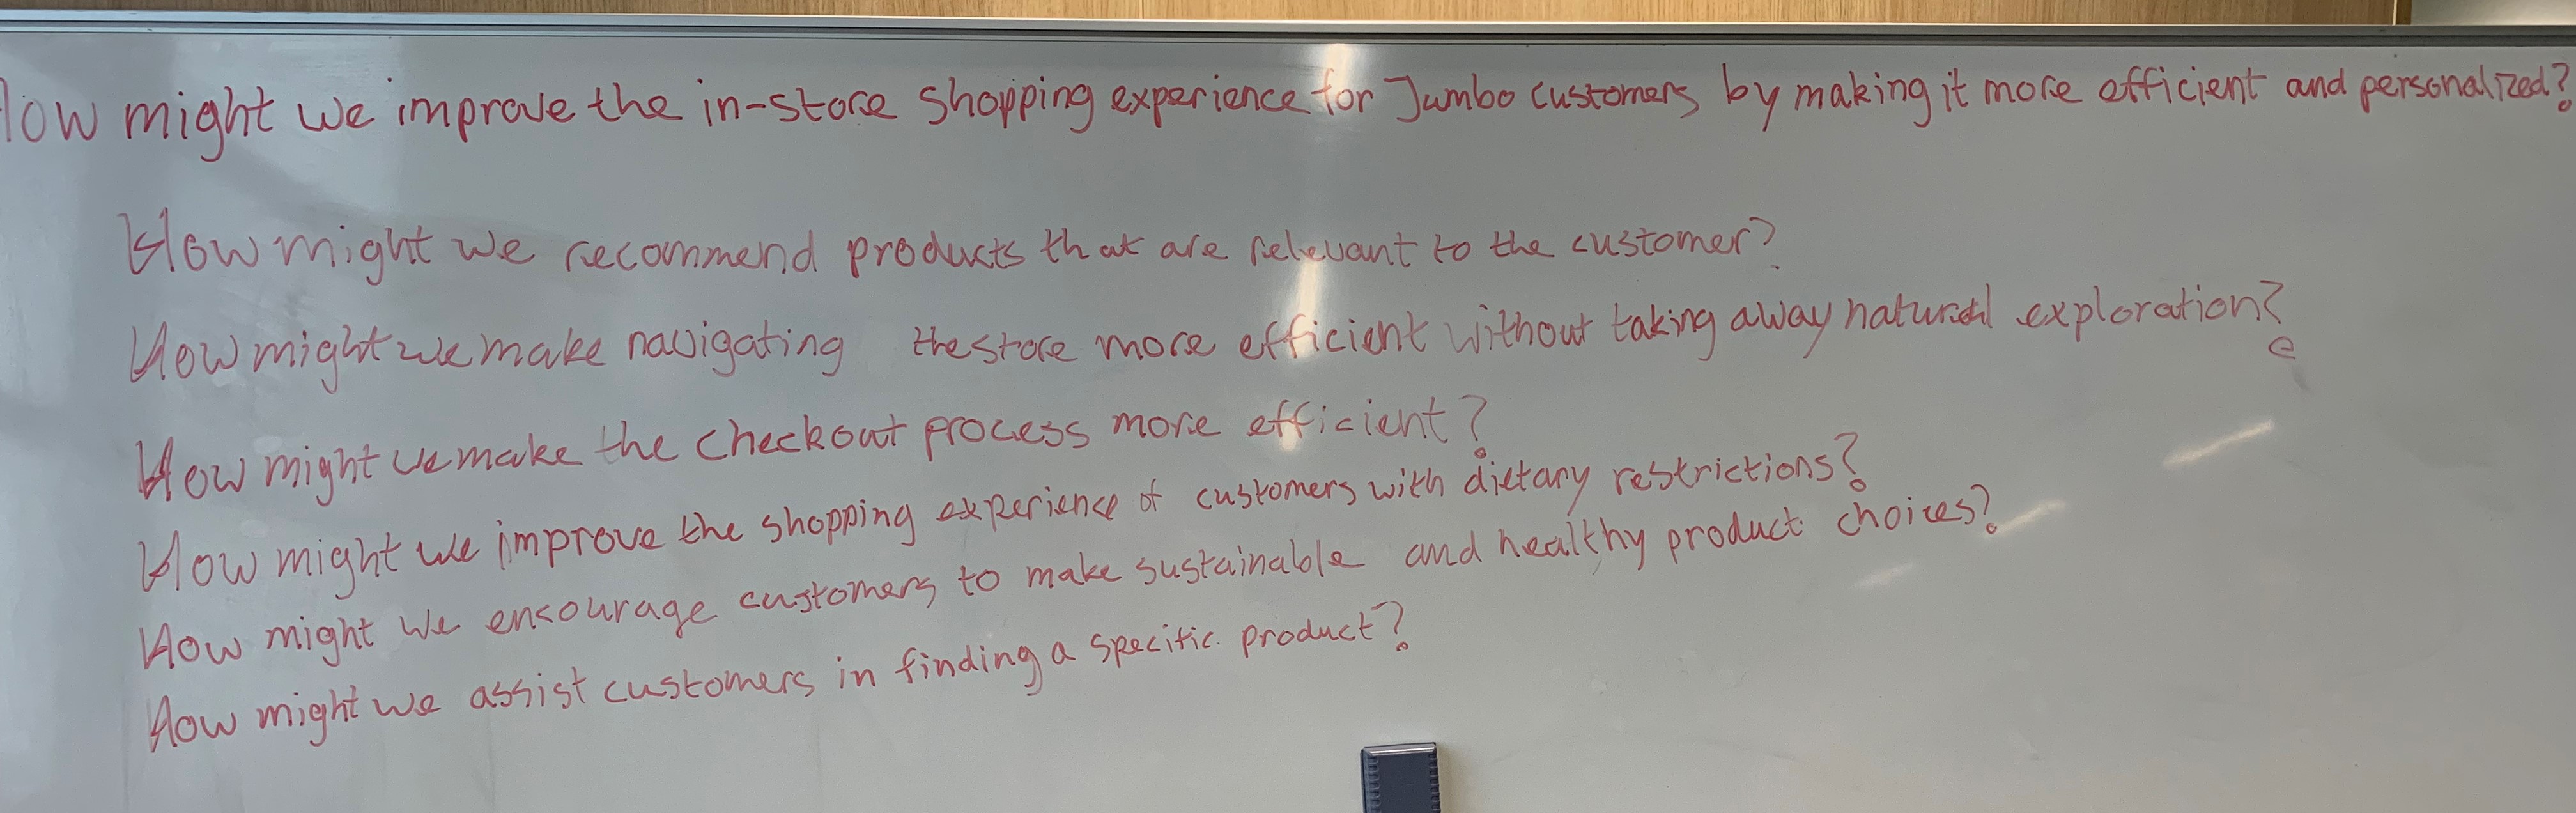 How might we improve the in-store shopping experience for Jumbo customers by making it more efficient and personalized?
How might we recommend products that are relevant to the customer?
How might we make navigating the store more efficient without taking away natural exploration?
How might we make the checkout process more efficient?
How might we improve the shopping experience of customers with dietary restrictions?
How might we encourage customers to make sustainable and healthy product choices?
How might we assist customers in finding a specific product?